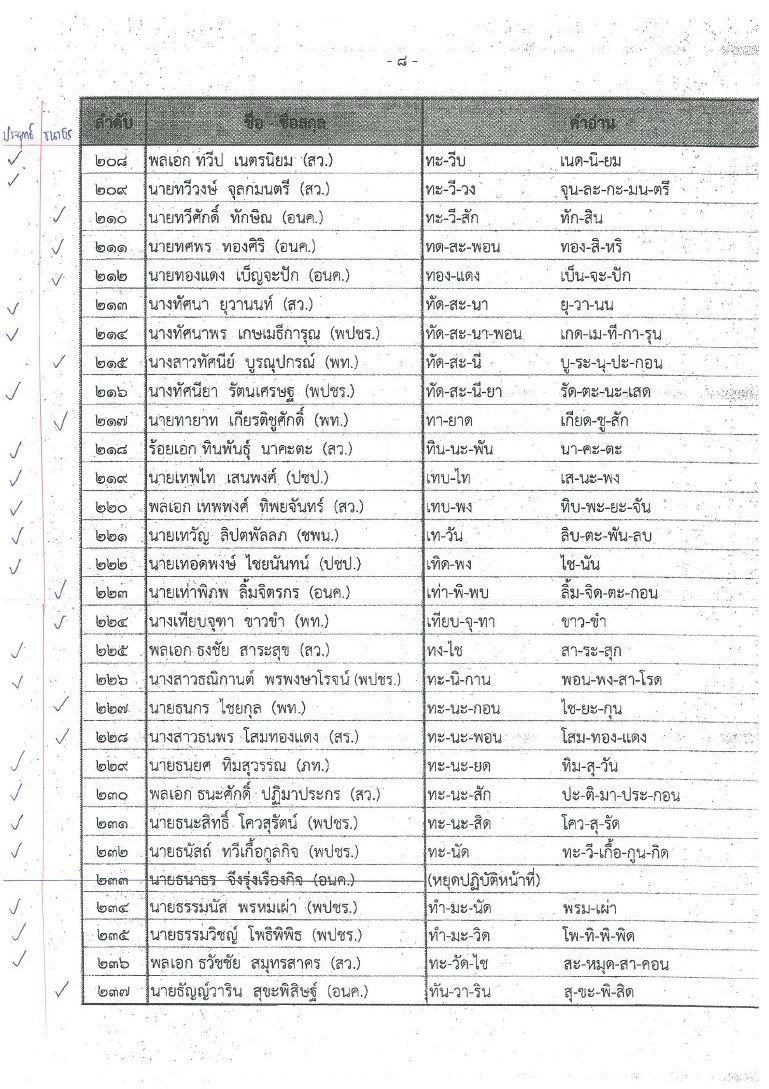 - ๘ -
ประยุทธ์ ธนาธร
ลำดับ ชื่อ - ชื่อสกุล คำอ่าน
✓ ๒๐๘ พลเอก ทวีป เนตรนิยม (สว.) ทะ-วีบ เนด-นิ-ยม
✓ ๒๐๙ นายทวีวงษ์ จุลกมนตรี (สว.) ทะ-วี-วง จุน-ละ-กะ-มน-ตรี
✓ ๒๑๐ นายทวีศักดิ์ ทักษิณ (อนค.) ทะ-วี-สัก ทัก-สิน
✓ ๒๑๑ นายทศพร ทองศิริ (อนค.) ทด-สะ-พอน ทอง-สิ-หริ
✓ ๒๑๒ นายทองแดง เบ็ญจะปัก (อนค.) ทอง-แดง เบ็น-จะ-ปัก
✓ ๒๑๓ นางทัศนา ยุวานนท์ (สว.) ทัด-สะ-นา ยุ-วา-นน
✓ ๒๑๔ นางทัศนาพร เกษเมธีการุณ (พปชร.) ทัด-สะ-นา-พอน เกด-เม-ที-กา-รุน
✓ ๒๑๕ นางสาวทัศนีย์ บูรณุปกรณ์ (พท.) ทัด-สะ-นี บู-ระ-นุ-ปะ-กอน
✓ ๒๑๖ นางทัศนียา รัตนเศรษฐ (พปชร.) ทัด-สะ-นี-ยา รัด-ตะ-นะ-เสด
✓ ๒๑๗ นายทายาท เกียรติชูศักดิ์ (พท.) ทา-ยาด เกียด-ชู-สัก
✓ ๒๑๘ ร้อยเอก ทินพันธุ์ นาคะตะ (สว.) ทิน-นะ-พัน นา-คะ-ตะ
✓ ๒๑๙ นายเทพไท เสนพงศ์ (ปชป.) เทบ-ไท เส-นะ-พง
✓ ๒๒๐ พลเอก เทพพงศ์ ทิพยจันทร์ (สว.) เทบ-พง ทิบ-พะ-ยะ-จัน
✓ ๒๒๑ นายเทวัญ ลิปตพัลลภ (ชพน.) เท-วัน ลิบ-ตะ-พัน-ลบ
✓ ๒๒๒ นายเทอดพงษ์ ไชยนันทน์ (ปชป.) เทิด-พง ไช-นัน
✓ ๒๒๓ นายเท่าพิภพ ลิ้มจิตรกร (อนค.) เท่า-พิ-พบ ลิ้ม-จิด-ตะ-กอน
✓ ๒๒๔ นางเทียบจุฑา ขาวขำ (พท.) เทียบ-จุ-ทา ขาว-ขำ
✓ ๒๒๕ พลเอก ธงชัย สาระสุข (สว.) ทง-ไช สา-ระ-สุก
✓ ๒๒๖ นางสาวธณิกานต์ พรพงษาโรจน์ (พปชร.) ทะ-นิ-กาน พอน-พง-สา-โรด
✓ ๒๒๗ นายธนกร ไชยกุล (พท.) ทะ-นะ-กอน ไช-ยะ-กุน
✓ ๒๒๘ นางสาวธนพร โสมทองแดง (สร.) ทะ-นะ-พอน โสม-ทอง-แดง
✓ ๒๒๙ นายธนยศ ทิมสุวรรณ (ภท.) ทะ-นะ-ยด ทิม-สุ-วัน
✓ ๒๓๐ พลเอก ธนะศักดิ์ ปฏิมาประกร (สว.) ทะ-นะ-สัก ปะ-ติ-มา-ประ-กอน
✓ ๒๓๑ นายธนะสิทธิ์ โควสุรัตน์ (พปชร.) ทะ-นะ-สิด โคว-สุ-รัด
✓ ๒๓๒ นายธนัสถ์ ทวีเกื้อกูลกิจ (พปชร.) ทะ-นัด ทะ-วี-เกื้อ-กูน-กิด
๒๓๓ นายธนาธร จึงรุ่งเรืองกิจ (อนค.) (หยุดปฏิบัติหน้าที่)
✓ ๒๓๔ นายธรรมนัส พรหมเผ่า (พปชร.) ทำ-มะ-นัด พรม-เผ่า
✓ ๒๓๕ นายธรรมวิชญ์ โพธิพิพิธ (พปชร.) ทำ-มะ-วิด โพ-ทิ-พิ-พิด
✓ ๒๓๖ พลเอก ธวัชชัย สมุทรสาคร (สว.) ทะ-วัด-ไช สะ-หมุด-สา-คอน
✓ ๒๓๗ นายธัญญ์วาริน สุขะพิสิษฐ์ (อนค.) ทัน-วา-ริน สุ-ขะ-พิ-สิด